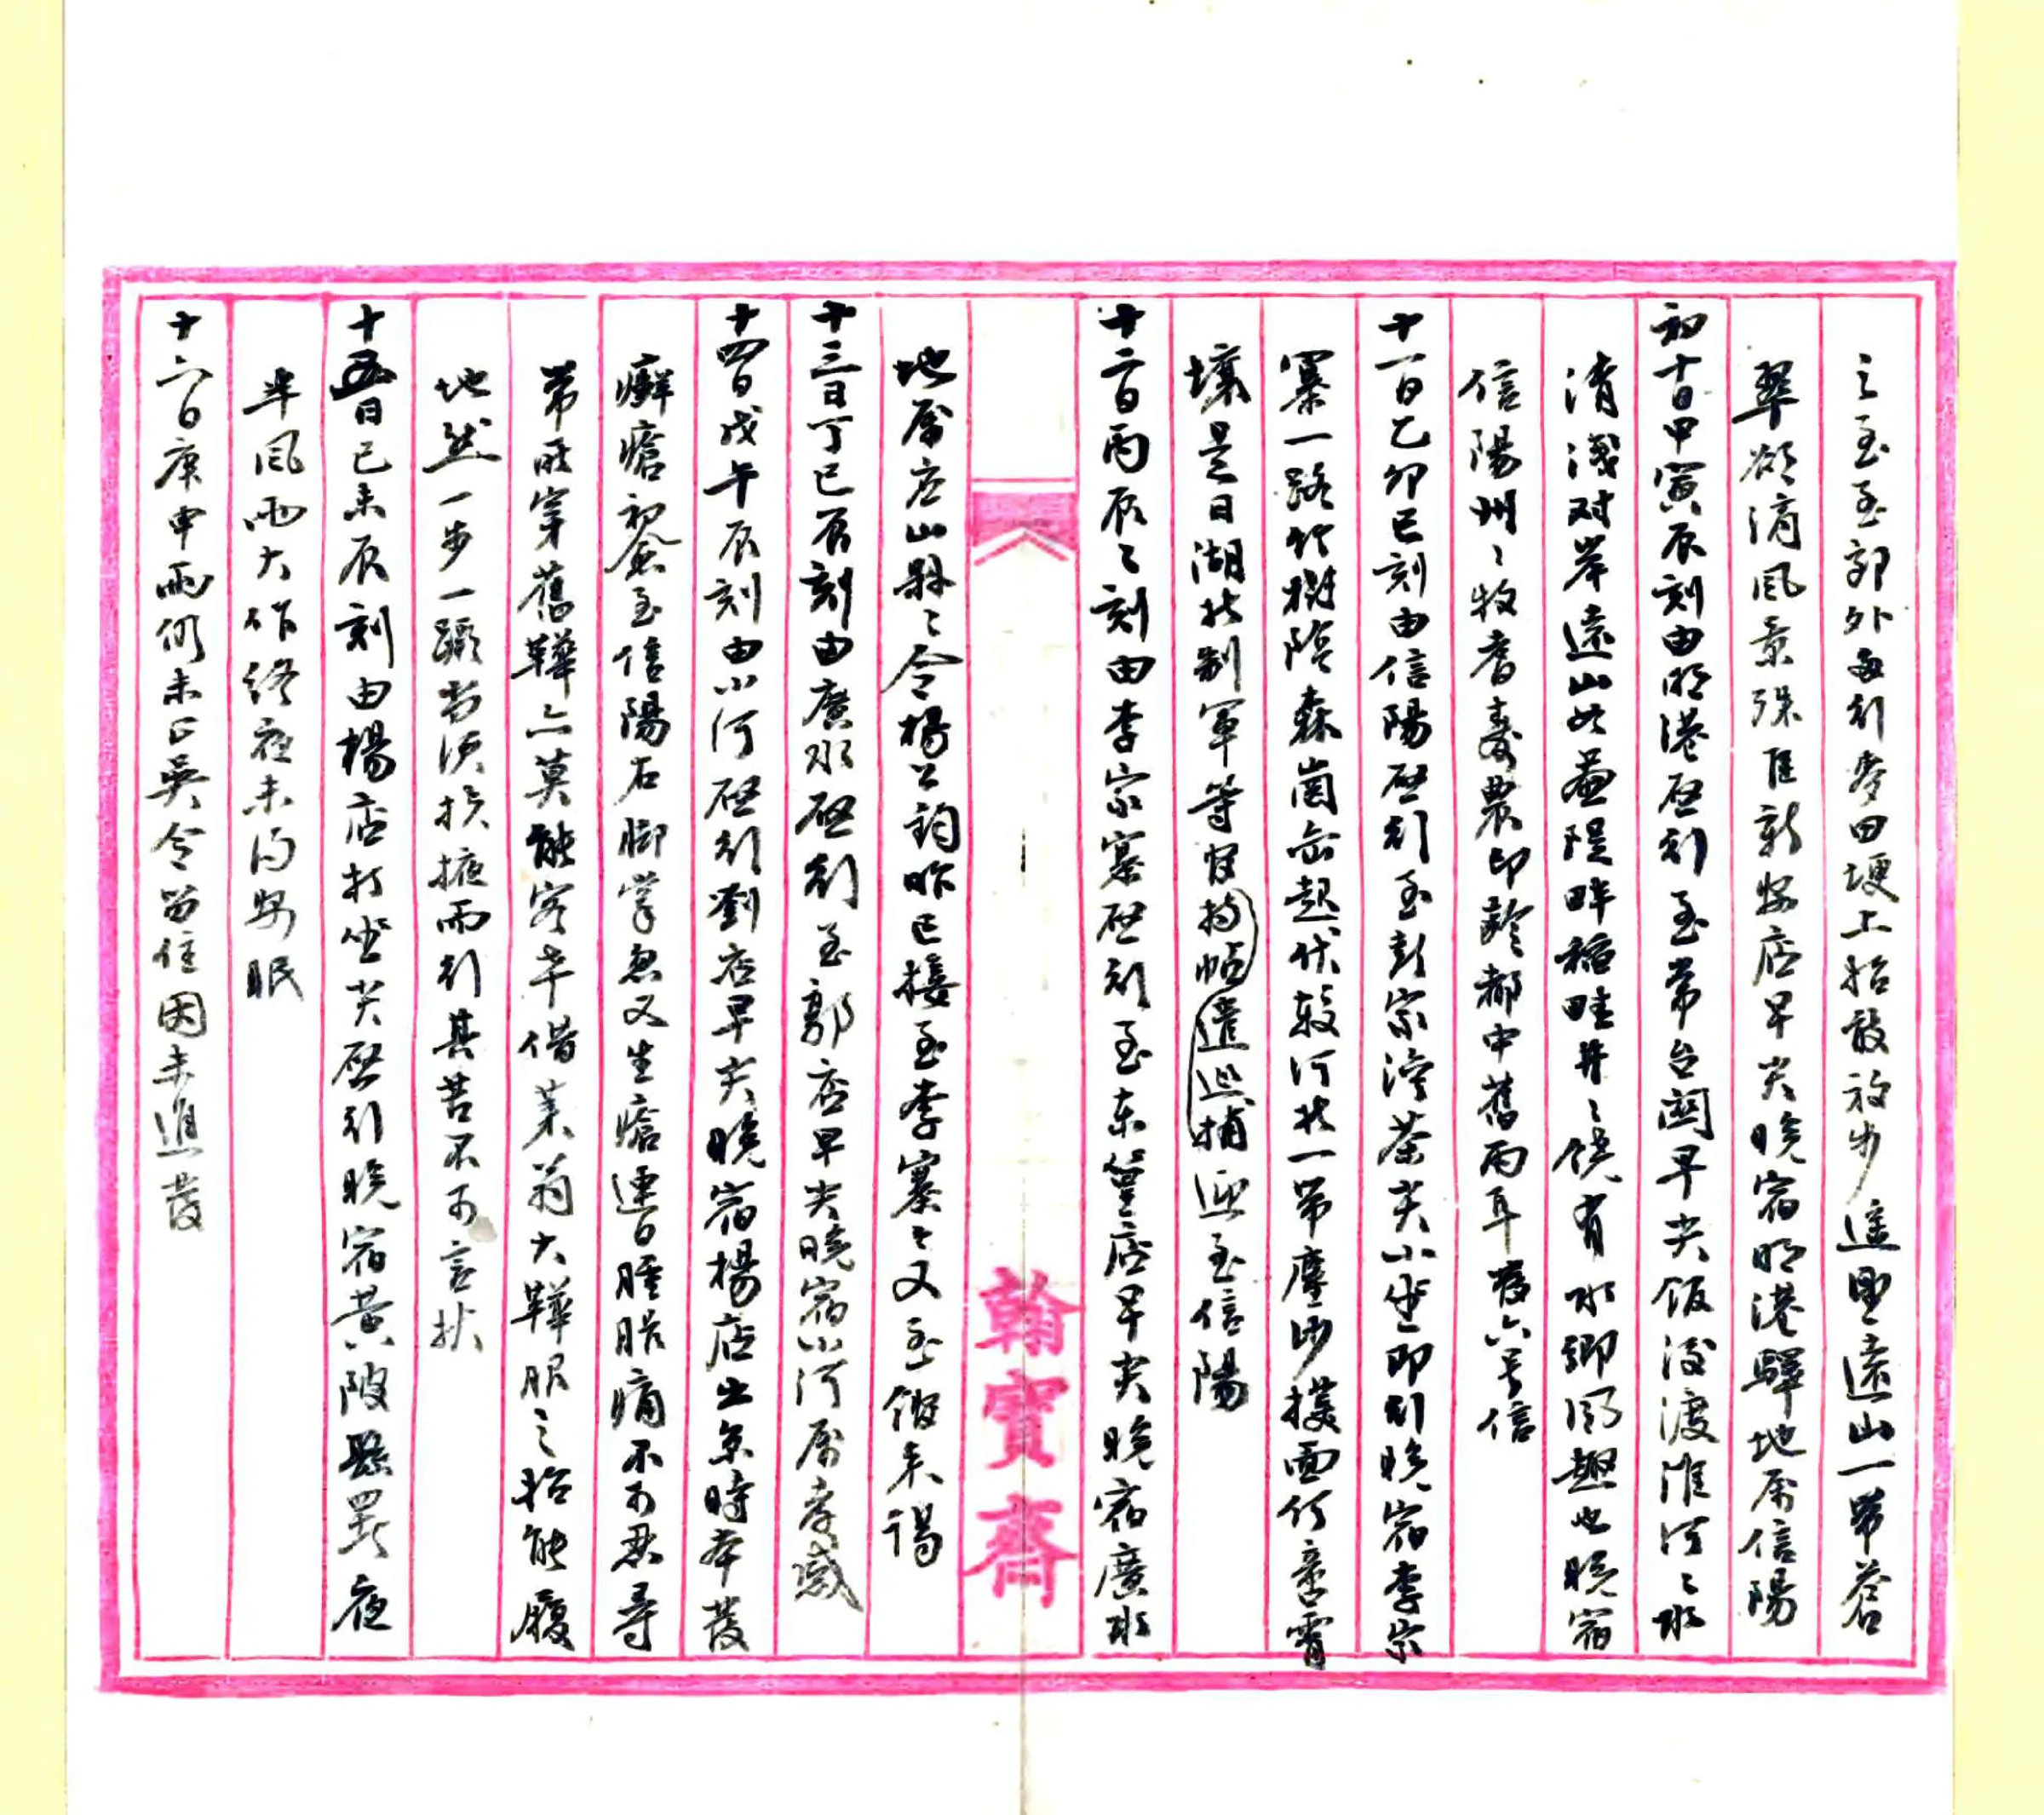 之至至郭外每行麥田埂上招散放步遙望遠山一帶蒼
翠欲滴風景殊佳新安店早尖晚宿明港驛地屬信陽
初十日甲寅辰刻由明港啟行至常台關早尖飯後渡淮河〻水
清淺对岸遠山如畫隄畔稻畦井〻饒有水鄉風趣也晚宿
信陽州〻牧耆壽農印齡都中舊雨耳發六号信
十一日乙卯巳刻由信陽啟行至彭家灣茶尖小坐即行晚宿李家
寨一路竹樹陰森崗巒起伏較河北一帶塵沙撲面何啻霄
壤是日湖北制軍等官持帖遣巡捕迎至信陽
十二日丙辰〻刻由李家寨啟行至東篁店早尖晚宿廣水
翰寶齋
地屬應山縣〻令楊公鈞昨已接至李寨〻又至館来謁
十三日丁巳辰刻由廣水啟行至郭店早尖晚宿小河屬孝感
十四日戊午辰刻由小河啟行劉店早尖晚宿楊店出京時本發
癬瘡初愈至信陽右脚掌忽又生瘡連日腫脹痛不可忍尋
常所穿舊鞾亦莫能容午借某翁大鞾服之招能履
地然一步一蹶尚須扶掖而行其苦不可言狀
十五日己未辰刻由楊店打坐尖啟行晚宿黃陂縣署夜
半風雨大作終夜未得安眠
十六日庚申雨仍未止吳令留住因未進發